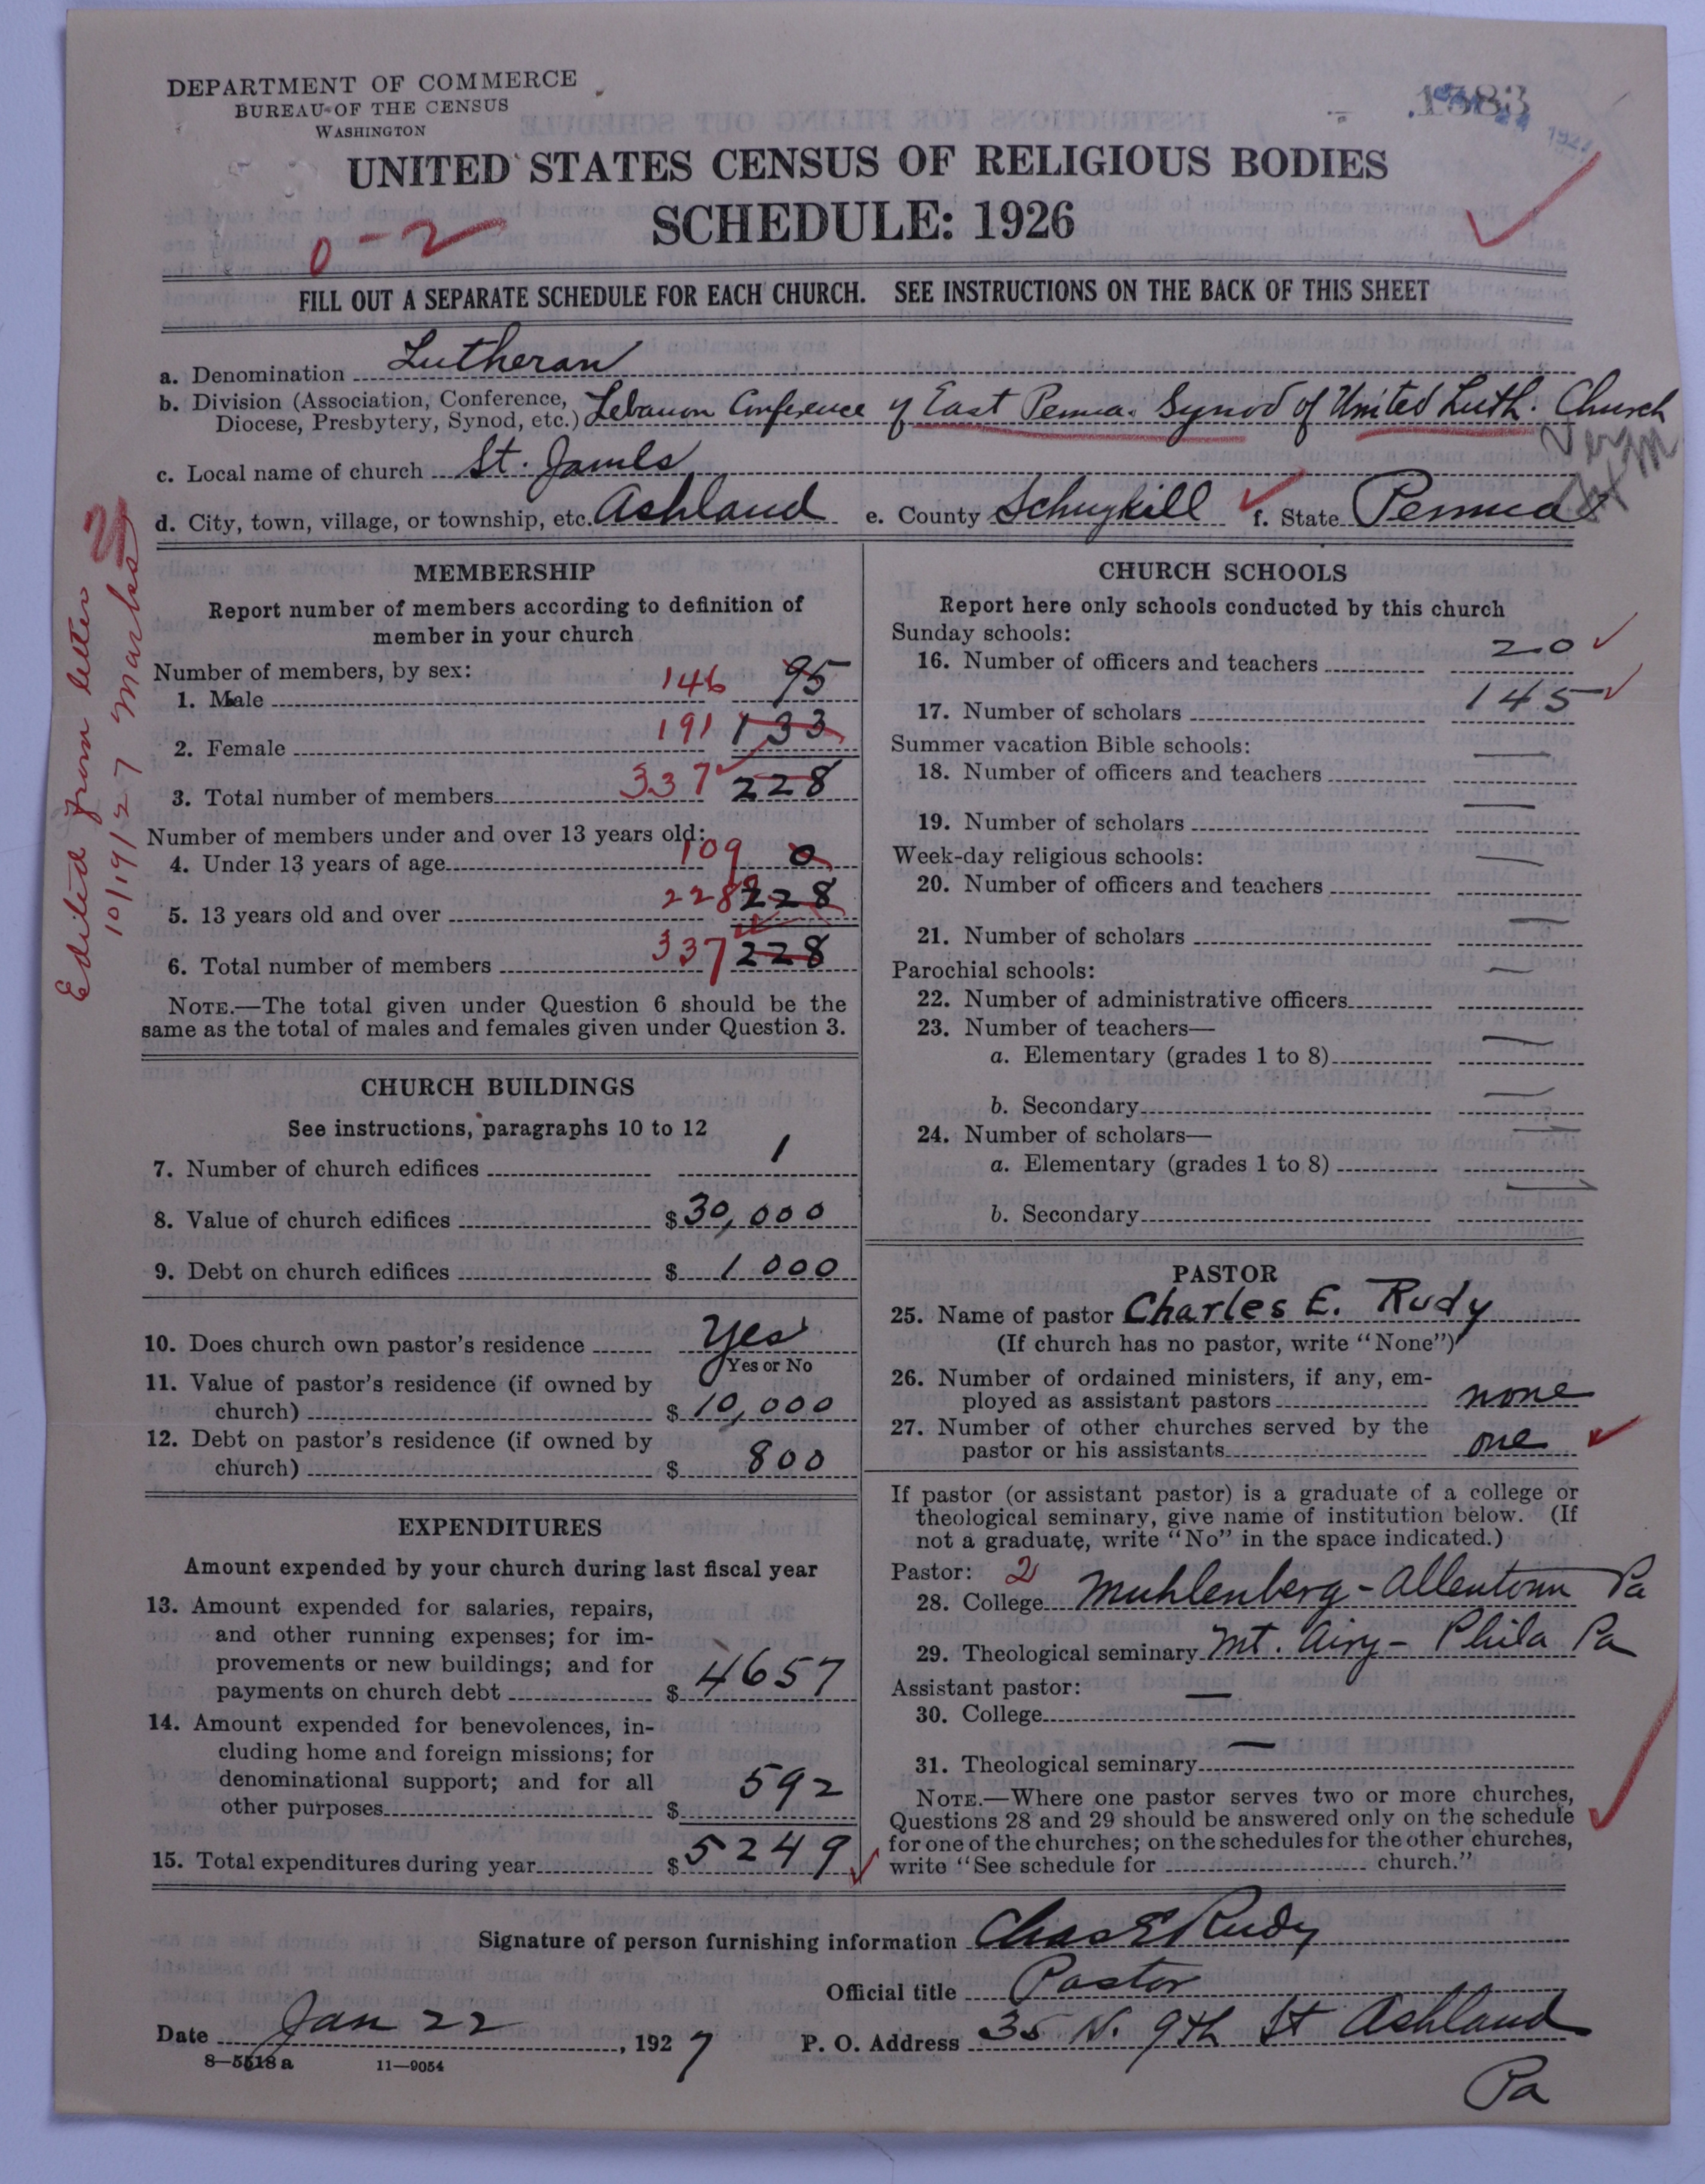 DEPARTMENT OF COMMERCE
BUREAU OF THE CENSUS
WASHINGTON
1383
UNITED STATES CENSUS OF RELIGIOUS BODIES
SCHEDULE: 1926
0-2
FILL OUT A SEPARATE SCHEDULE FOR EACH CHURCH. SEE INSTRUCTIONS ON THE BACK OF THIS SHEET
a. Denomination Lutheran
b. Division (Association, Conference, Diocese, Presbytery, Synod, etc.) Lebanon Conference of East Penna. Synod of United Luth. Church
c. Local name of church St. James
d. City, town, village, or township, etc. Ashland e. County Schuykill f. State Penna
Edited from letter
10/19/27 Marks
MEMBERSHIP
Report number of members according to definition of
member in your church
Number of members, by sex:
1. Male 146 95
2. Female 191 133
3. Total number of members 337 228
Number of members under and over 13 years old:
4. Under 13 years of age 109 0
5. 13 years old and over 228 228
6. Total number of members 337 228
NOTE.—The total given under Question 6 should be the
same as the total of males and females given under Question 3.
CHURCH BUILDINGS
See instructions, paragraphs 10 to 12
7. Number of church edifices 1
8. Value of church edifices $ 30,000
9. Debt on church edifices $ 1000
10. Does church own pastor's residence Yes
Yes or No
11. Value of pastor's residence (if owned by
church) $ 10,000
12. Debt on pastor's residence (if owned by
church) $ 800
EXPENDITURES
Amount expended by your church during last fiscal year
13. Amount expended for salaries, repairs,
and other running expenses; for im-
provements or new buildings; and for
payments on church debt $ 4657
14. Amount expended for benevolences, in-
cluding home and foreign missions; for
denominational support; and for all
other purposes $ 592
15. Total expenditures during year $ 5249
CHURCH SCHOOLS
Report here only schools conducted by this church
Sunday schools:
16. Number of officers and teachers 20
17. Number of scholars 145
Summer vacation Bible schools:
18. Number of officers and teachers —
19. Number of scholars —
Week-day religious schools:
20. Number of officers and teachers —
21. Number of scholars —
Parochial schools:
22. Number of administrative officers —
23. Number of teachers—
a. Elementary (grades 1 to 8) —
b. Secondary —
24. Number of scholars—
a. Elementary (grades 1 to 8) —
b. Secondary —
PASTOR
25. Name of pastor Charles E. Rudy
(If church has no pastor, write "None")
26. Number of ordained ministers, if any, em-
ployed as assistant pastors none
27. Number of other churches served by the
pastor or his assistants one
If pastor (or assistant pastor) is a graduate of a college or
theological seminary, give name of institution below. (If
not a graduate, write "No" in the space indicated.)
Pastor: 2
28. College Muhlenberg - Allentown Pa
29. Theological seminary Mt. Airy - Phila Pa
Assistant pastor:
30. College —
31. Theological seminary —
NOTE.—Where one pastor serves two or more churches,
Questions 28 and 29 should be answered only on the schedule
for one of the churches; on the schedules for the other churches,
write "See schedule for church."
Signature of person furnishing information Chas E Rudy
Official title Pastor
Date Jan 22, 1927 P. O. Address 35 N. 9th St Ashland
Pa
8—5518a 11—9054